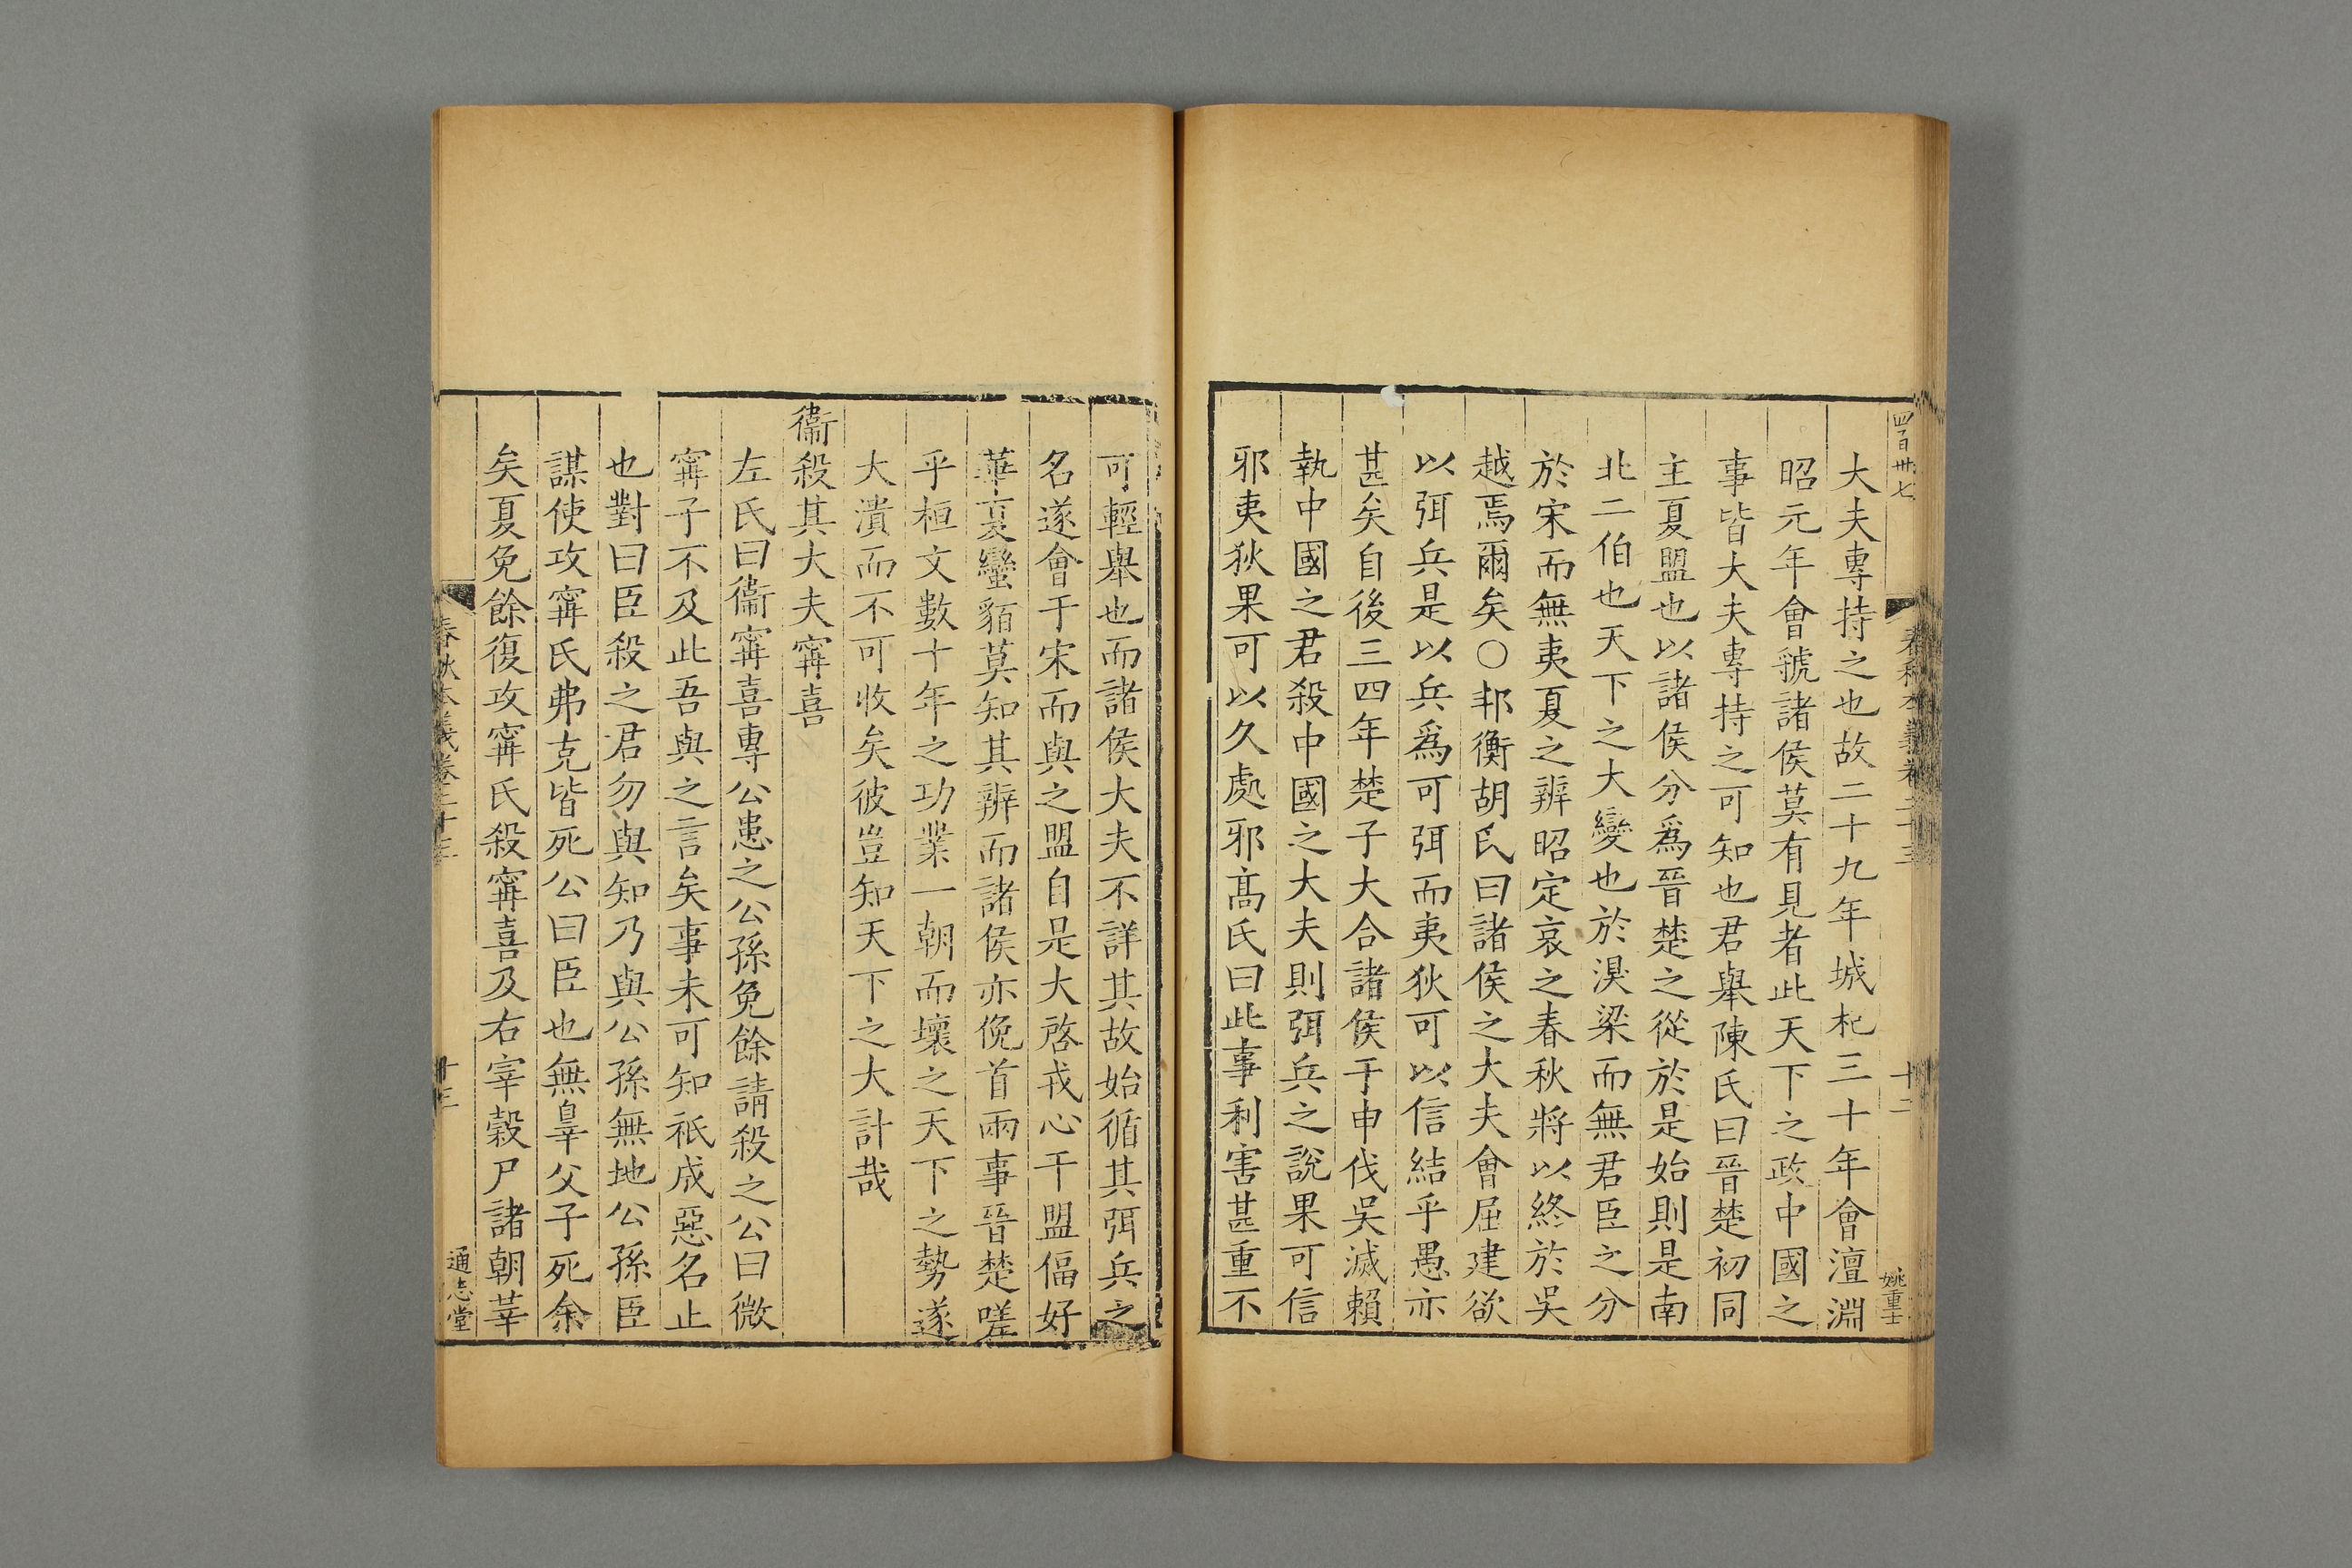 四百卅七
春秋本義卷二十三
十二
姚重士
大夫專持之也故二十九年城杞三十年會澶淵
昭元年會虢諸侯莫有見者此天下之政中國之
事皆大夫專持之可知也君舉陳氏曰晉楚初同
主夏盟也以諸侯分爲晉楚之從於是始則是南
北二伯也天下之大變也於湨梁而無君臣之分
於宋而無夷夏之辨昭定哀之春秋將以終於吳
越焉爾矣○邦衡胡氏曰諸侯之大夫會屈建欲
以弭兵是以兵爲可弭而夷狄可以信結乎愚亦
甚矣自後三四年楚子大合諸侯于申伐吳滅賴
執中國之君殺中國之大夫則弭兵之說果可信
邪夷狄果可以久處邪髙氏曰此事利害甚重不
可輕舉也而諸侯大夫不詳其故始循其弭兵之
名遂會于宋而與之盟自是大啓戎心干盟偪好
華裏蠻貊莫知其辨而諸侯亦俛首兩事晉楚嗟
乎桓文數十年之功業一朝而壞之天下之勢遂
大潰而不可收矣彼豈知天下之大計哉
衞殺其大夫甯喜
左氏曰衞甯喜專公患之公孫免餘請殺之公曰微
甯子不及此吾與之言矣事未可知祇成惡名止
也對曰臣殺之君勿與知乃與公孫無地公孫臣
謀使攻甯氏弗克皆死公曰臣也無辠父子死余
矣夏免餘復攻甯氏殺甯喜及右宰穀尸諸朝莘
春秋本義卷二十三
十三
通志堂